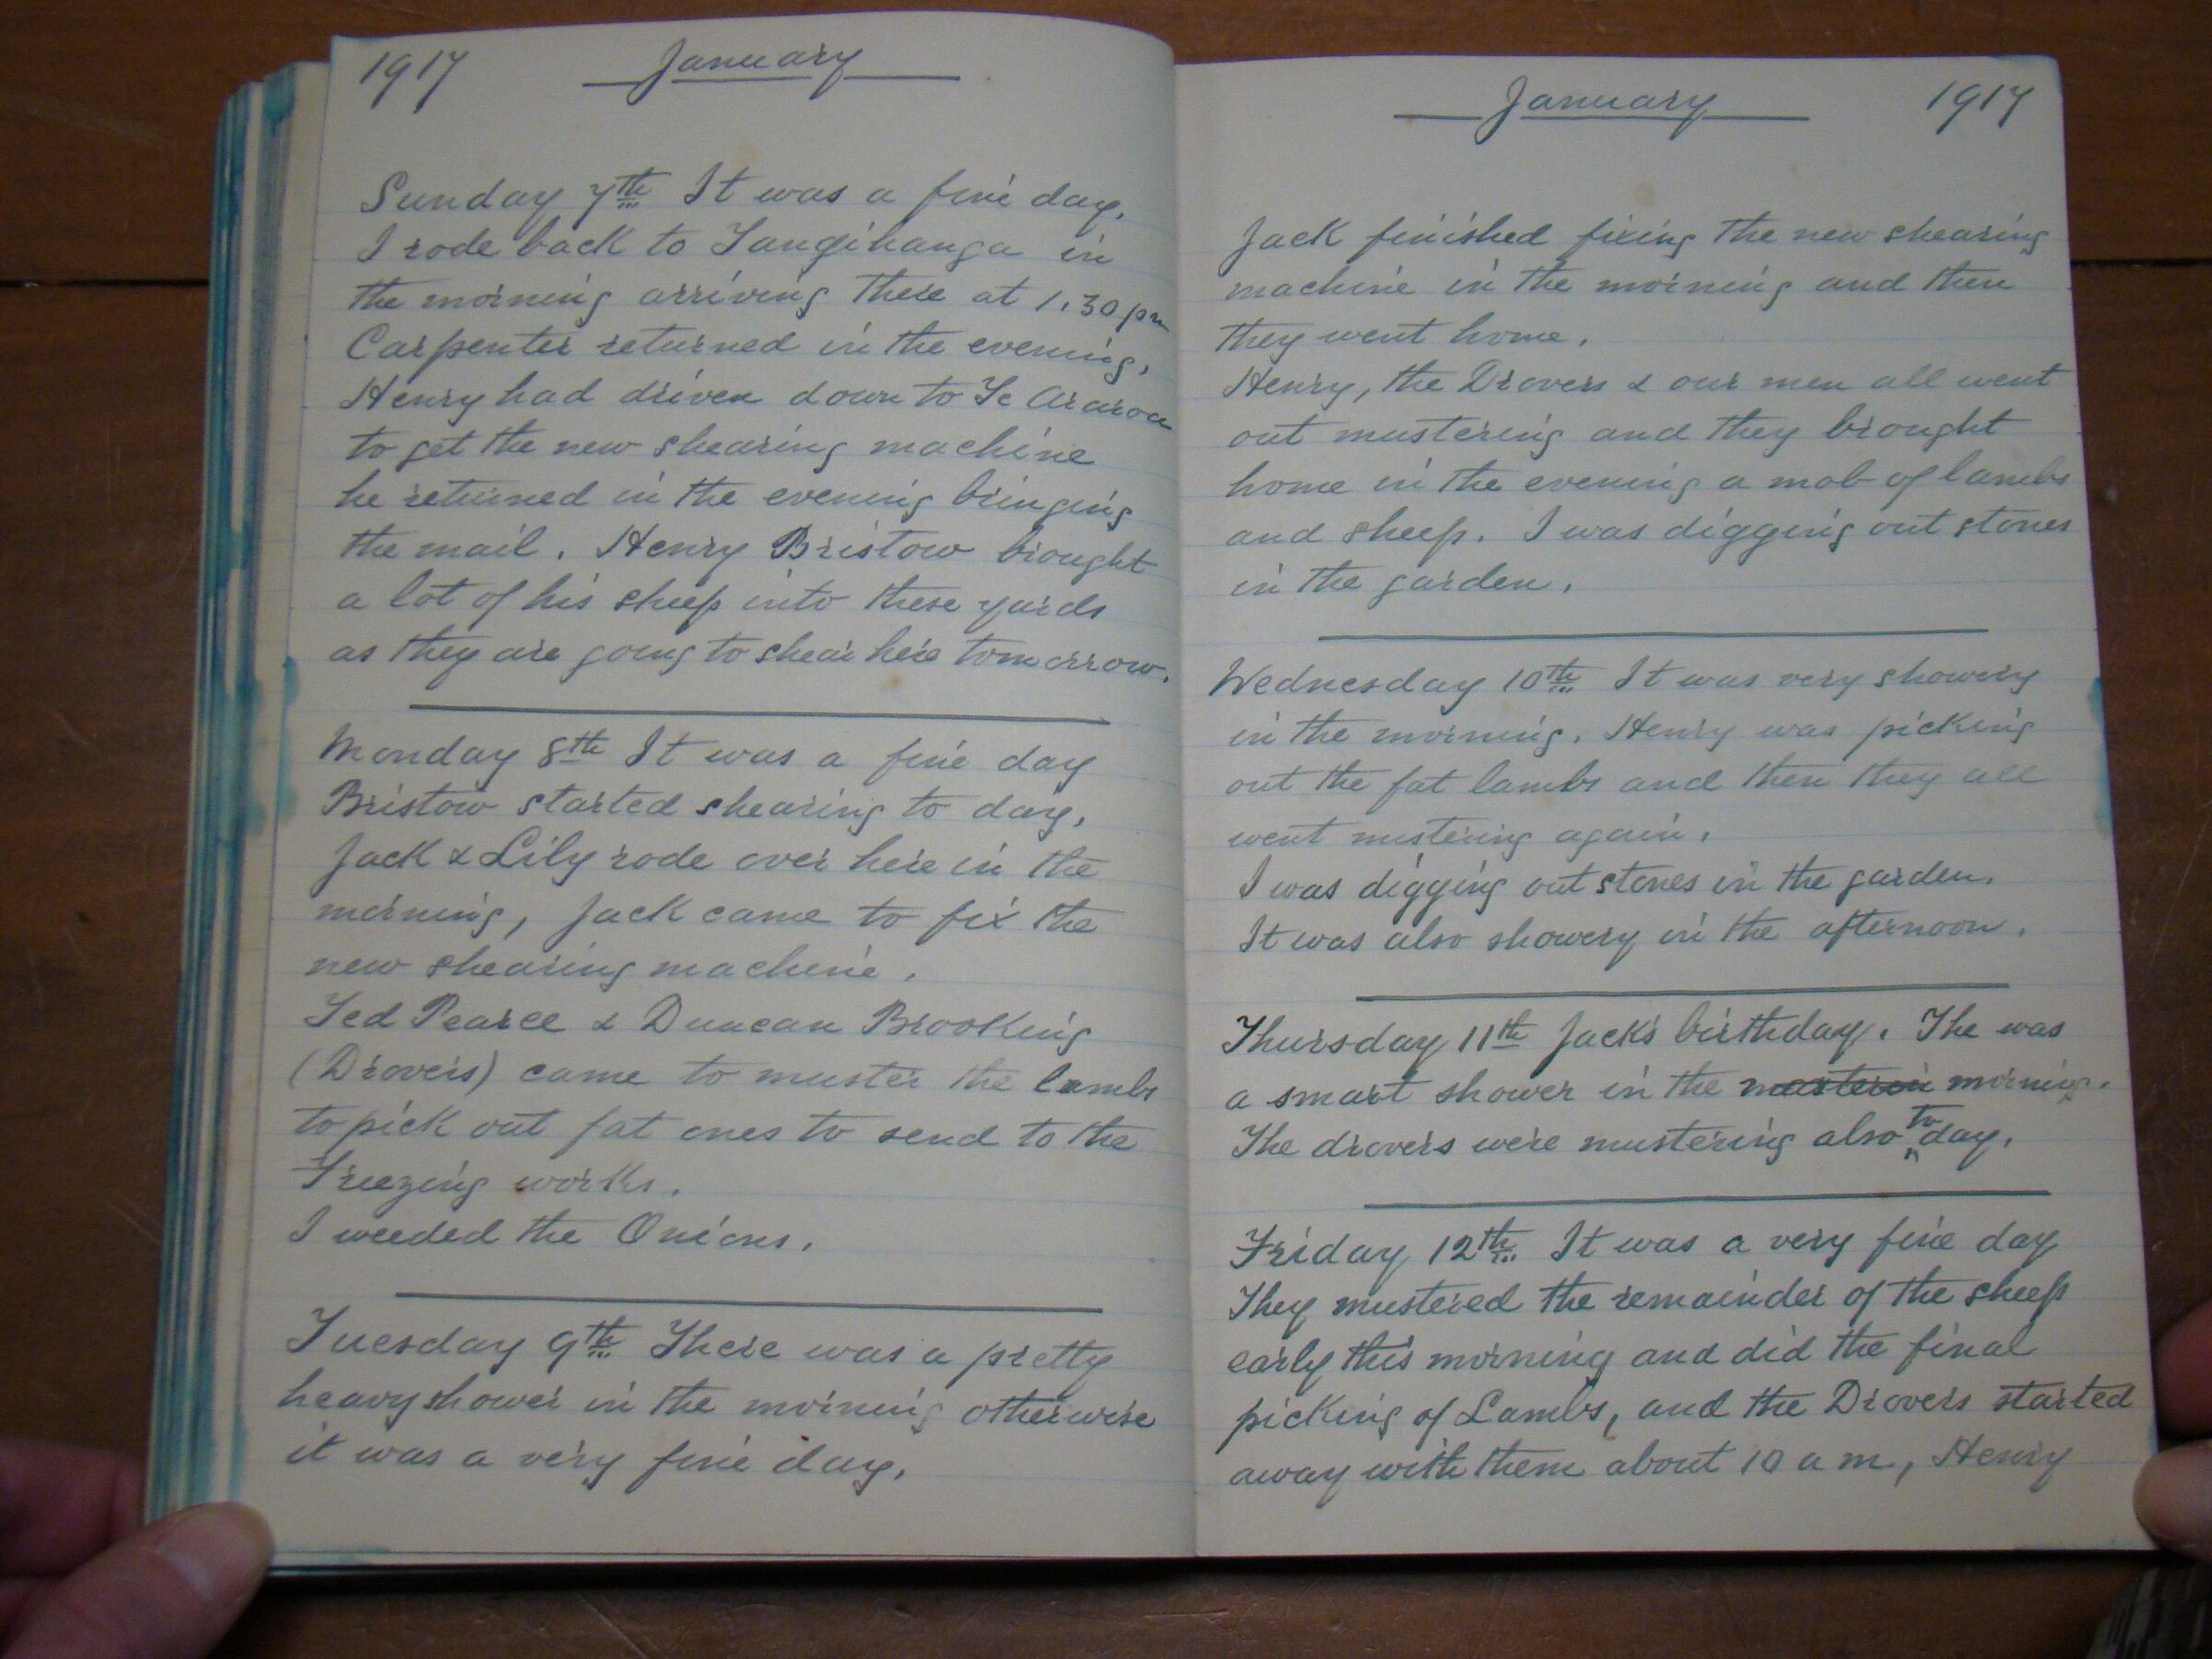 1917 January
Sunday 7th It was a fine day,
I rode back to Tangihanga in
the morning arriving there at 1.30 pm
Carpenter returned in the evening,
Henry had driven down to Te Araroa
to get the new shearing machine
he returned in the evening bringing
the mail. Henry Bristow brought
a lot of his sheep into these yards
as they are going to shear here tomorrow.
Monday 8th It was a fine day
Bristow started shearing to day,
Jack & Lily rode over here in the
morning, Jack came to fix the
new shearing machine.
Ted Pearce & Duncan Brooking
(Drovers) came to muster the lambs
to pick out fat ones to send to the
Freezing works.
I weeded the Onions.
Tuesday 9th There was a pretty
heavy shower in the morning otherwise
it was a very fine day.
January 1917
Jack finished fixing the new shearing
machine in the morning and then
they went home.
Henry, the Drovers & our men all went
out mustering and they brought
home in the evening a mob of lambs
and sheep. I was digging out stones
in the garden.
Wednesday 10th It was very showery
in the morning. Henry was picking
out the fat lambs and then they all
went mustering again.
I was digging out stones in the garden.
It was also showery in the afternoon.
Thursday 11th Jack's birthday. The was
a smart shower in the morning.
The drovers were mustering also to day.
Friday 12th It was a very fine day
They mustered the remainder of the sheep
early this morning and did the final
picking of Lambs, and the Drovers started
away with them about 10 a m, Henry